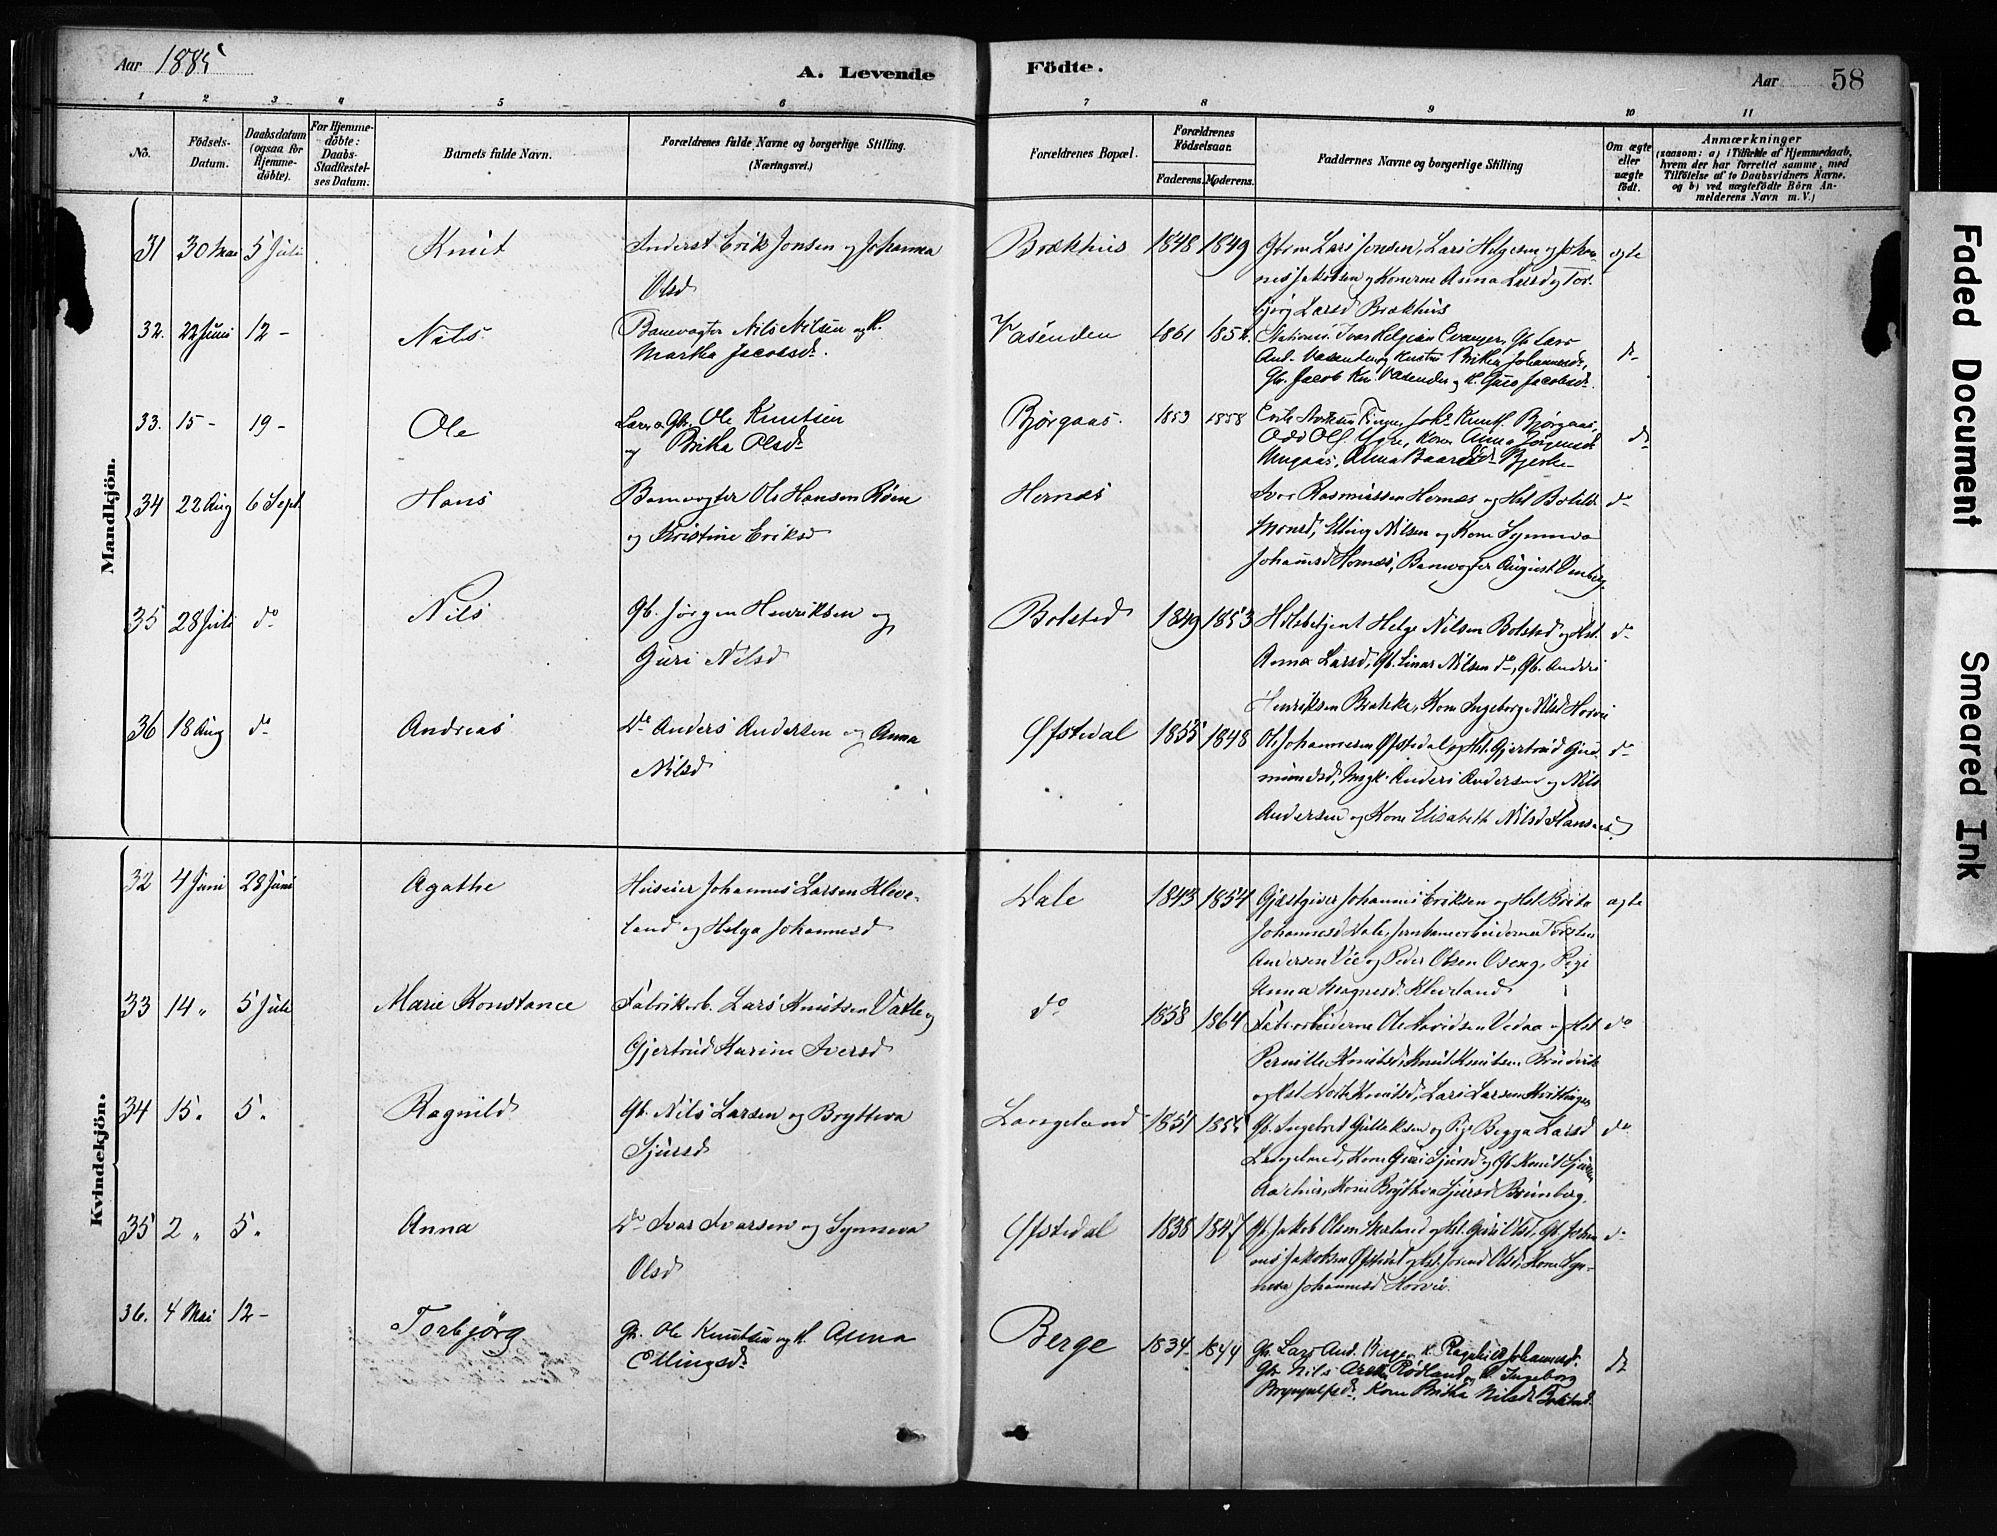 Aar 1885
A. Levende
Födte.
Aar
58
1 2 3 4 5 6 7 8 9 10 11
No.
Födsels-
Datum.
Daabsdatum
(ogsaa for
Hjemme-
döbte).
For Hjemme-
döbte:
Daabs-
Stadfæstel-
ses Datum.
Barnets fulde Navn.
Forældrenes fulde Navne og borgerlige Stilling.
(Næringsvei.)
Forældrenes Bopæl.
Forældrenes
Födselsaar.
Faderens. Moderens.
Faddernes Navne og borgerlige Stilling
Om ægte
eller
uægte
födt.
Anmærkninger
(saasom: a) i Tilfælde af Hjemmedaab,
hvem der har forrettet samme, med
Tilföielse af to Daabsvidners Navne.
og b) ved uægtefödte Börn An-
melderens Navn m. V.)
Mandkjön.
31 30 Mai 5 Juli Knut
Inderst Erik Jonsen og Johanna
Olsd
Brækhus 1848 1849
Lars Jonsen, Lars Helgesen og Johan-
nes Jakobsen og Konerne Anna Larsd og Tor-
bjørg Larsd Brækhus
ægte
32. 22 Juni 12 - Nils
Banevogter Nils Nilsen og K.
Martha Jacobsdr.
Vasenden 1861
Ivar Helgesen Evanger, Gb. Lars
And. Vasenden og Brita Johannesdr,
Gb. Jacob Kn. Vasenden og K. Guro Jacobsdr.
dr
33. 15 - 19 - Ole
Ole Knutsen
og Brita Olsdr
Bjørgaas. 1853 1858
Joh. Knut. Bjørgaas,
Odd Ols. Ygre, Kone Anna Jørgensdr
Anna Baardsdr Bjerke
do
34 22 Aug 6 Sept. Hans
Banevogter Ole Hansen Röm
og Kristine Eriksd
Hernes
Ivar Rasmussen Hernes og Hst Botilde
Monsd, Elling Nilsen og Kone Synneva
Johannsd Hernes, Banevogter August
do
35 28 Juli do Nils
Gb. Jörgen Henriksen og
Guri Nilsd
Bolstad 1849 1853
Helge Nilsen Bolstad og Hst.
Anna Larsd, Gb. Einar Nilsen do, Gb. Anders
Henriksen Brække, Kone Ingeborg Nilsd Horvei
do
36 18 Aug do Andreas
Do Anders Andersen og Anna
Nilsd
Øfstedal 1855 1848
Ole Johannesen Øfstedal og Hst. Gjertrud Gud-
mundsd, Ungk. Anders Andersen og Nils
Andersen og Kone Elisabeth Nilsd
do
Kvindekjön.
32 4 Juni 28 Juni Agathe
Huseier Johannes Larsen Kleve-
land og Helga Johannesd
Dale 1843 1854
Gjæstgiver Johannes Eriksen og Hst Brita
Johannesd Dale, Jernbanearbeiderne Torsten
Andersen Vie og Peder Olsen Oseng, Pige
Anna Magnesd. Kleveland
ægte
33 14 " 5 Juli Marie Konstance
Fabrikarb. Lars Knutsen Vatle og
Gjertrud Karine Iversd
do 1858 1864
Fabr.arbeiderne Ole Davidsen Vedaa og Hst
Pernille Knutsd, Knut Knutsen
og Hst Dorte Knutsd, Lars Larsen
do
34 15 " 5 " Ragnild
Gb. Nils Larsen og Brytteva
Sjursd
Langeland 1851 1855
Gb. Ingebret Gulleksen og Pige Begga Larsd
Langeland, Kone Guri Sjursd og Gb. Knut
Kone Brytteva Sjursd Brunberg.
do
35 2 " 5 " Anna
Do Ivar Ivarsen og Synneva
Olsd
Øfstedal 1838 1847
Gb. Jakob Olsen og Hst. Guri Olsd, Gb. Johan-
nes Jakobsen Øfstedal og Hst. Jorend Olsd, Kone Syn-
neva Johannesd Horvei.
do
36. 4 Mai 12 - Torbjørg
Gb. Ole Knutsen og K. Anna
Ellingsdr
Berge 1834. 1844
Gb. Lars And. Berge og K. Ragnhild Johannesdr.
Gb. Nils Rødland og K. Ingeborg
Brynjulfsdr, Kone Brita Nilsdr Bolstad.
dr
Faded Document
Smeared Ink